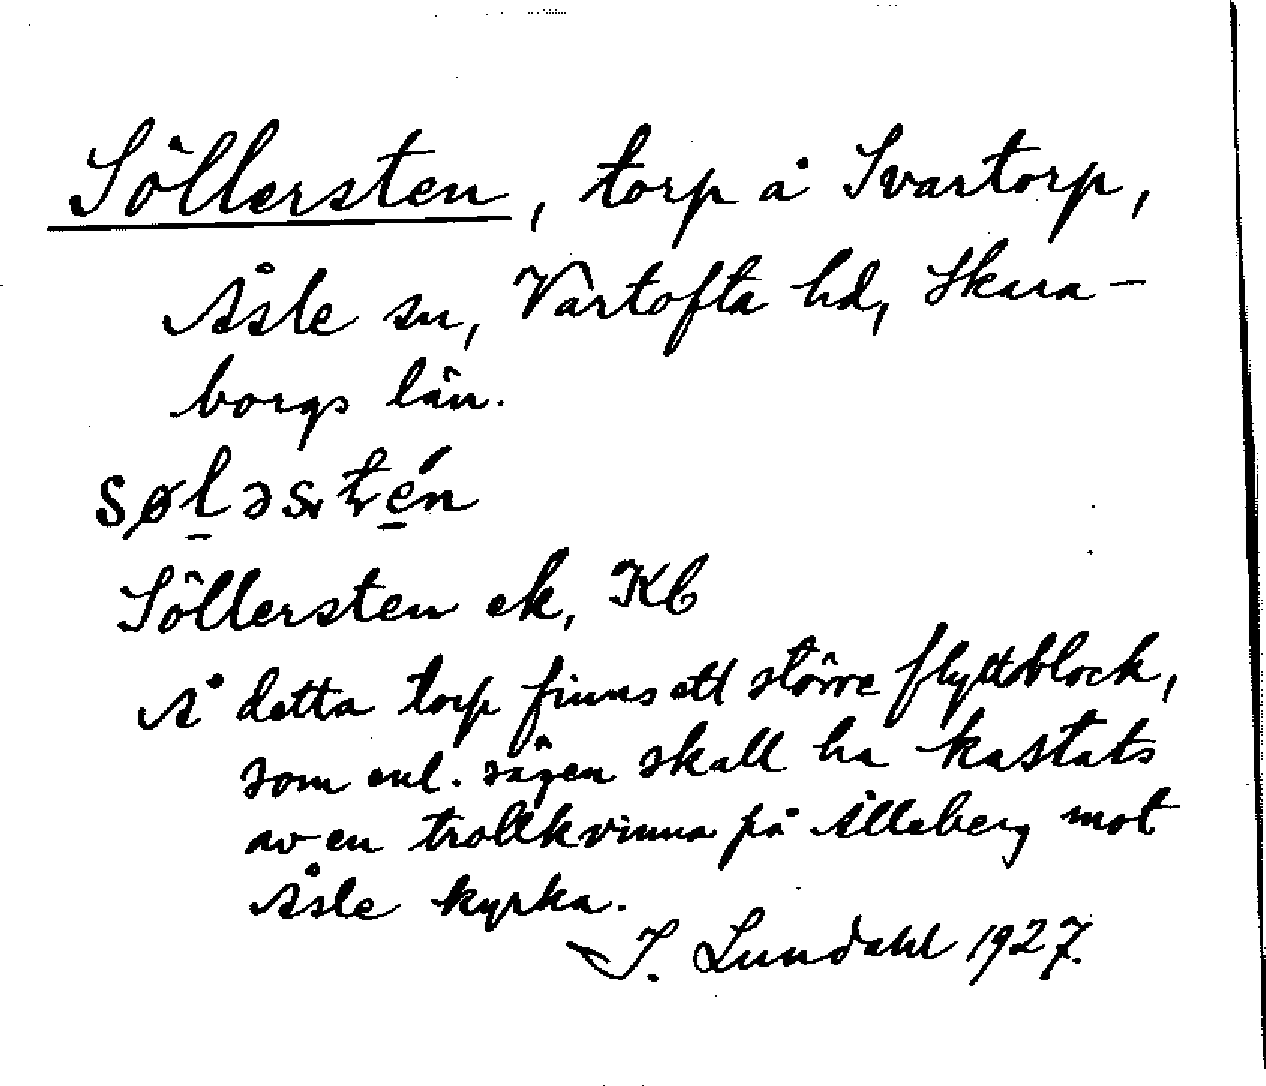 Söllersten, torp å Svartorp,
Åsle sn, Vartofta hd, Skara-
borgs län.
søləstén
Söllersten ek, KB
Å detta torp finns ett större flyttblock,
som enl. sägen skall ha kastats
av en trollkvinna på Ålleberg mot
Åsle kyrka.
I. Lundahl 1927.